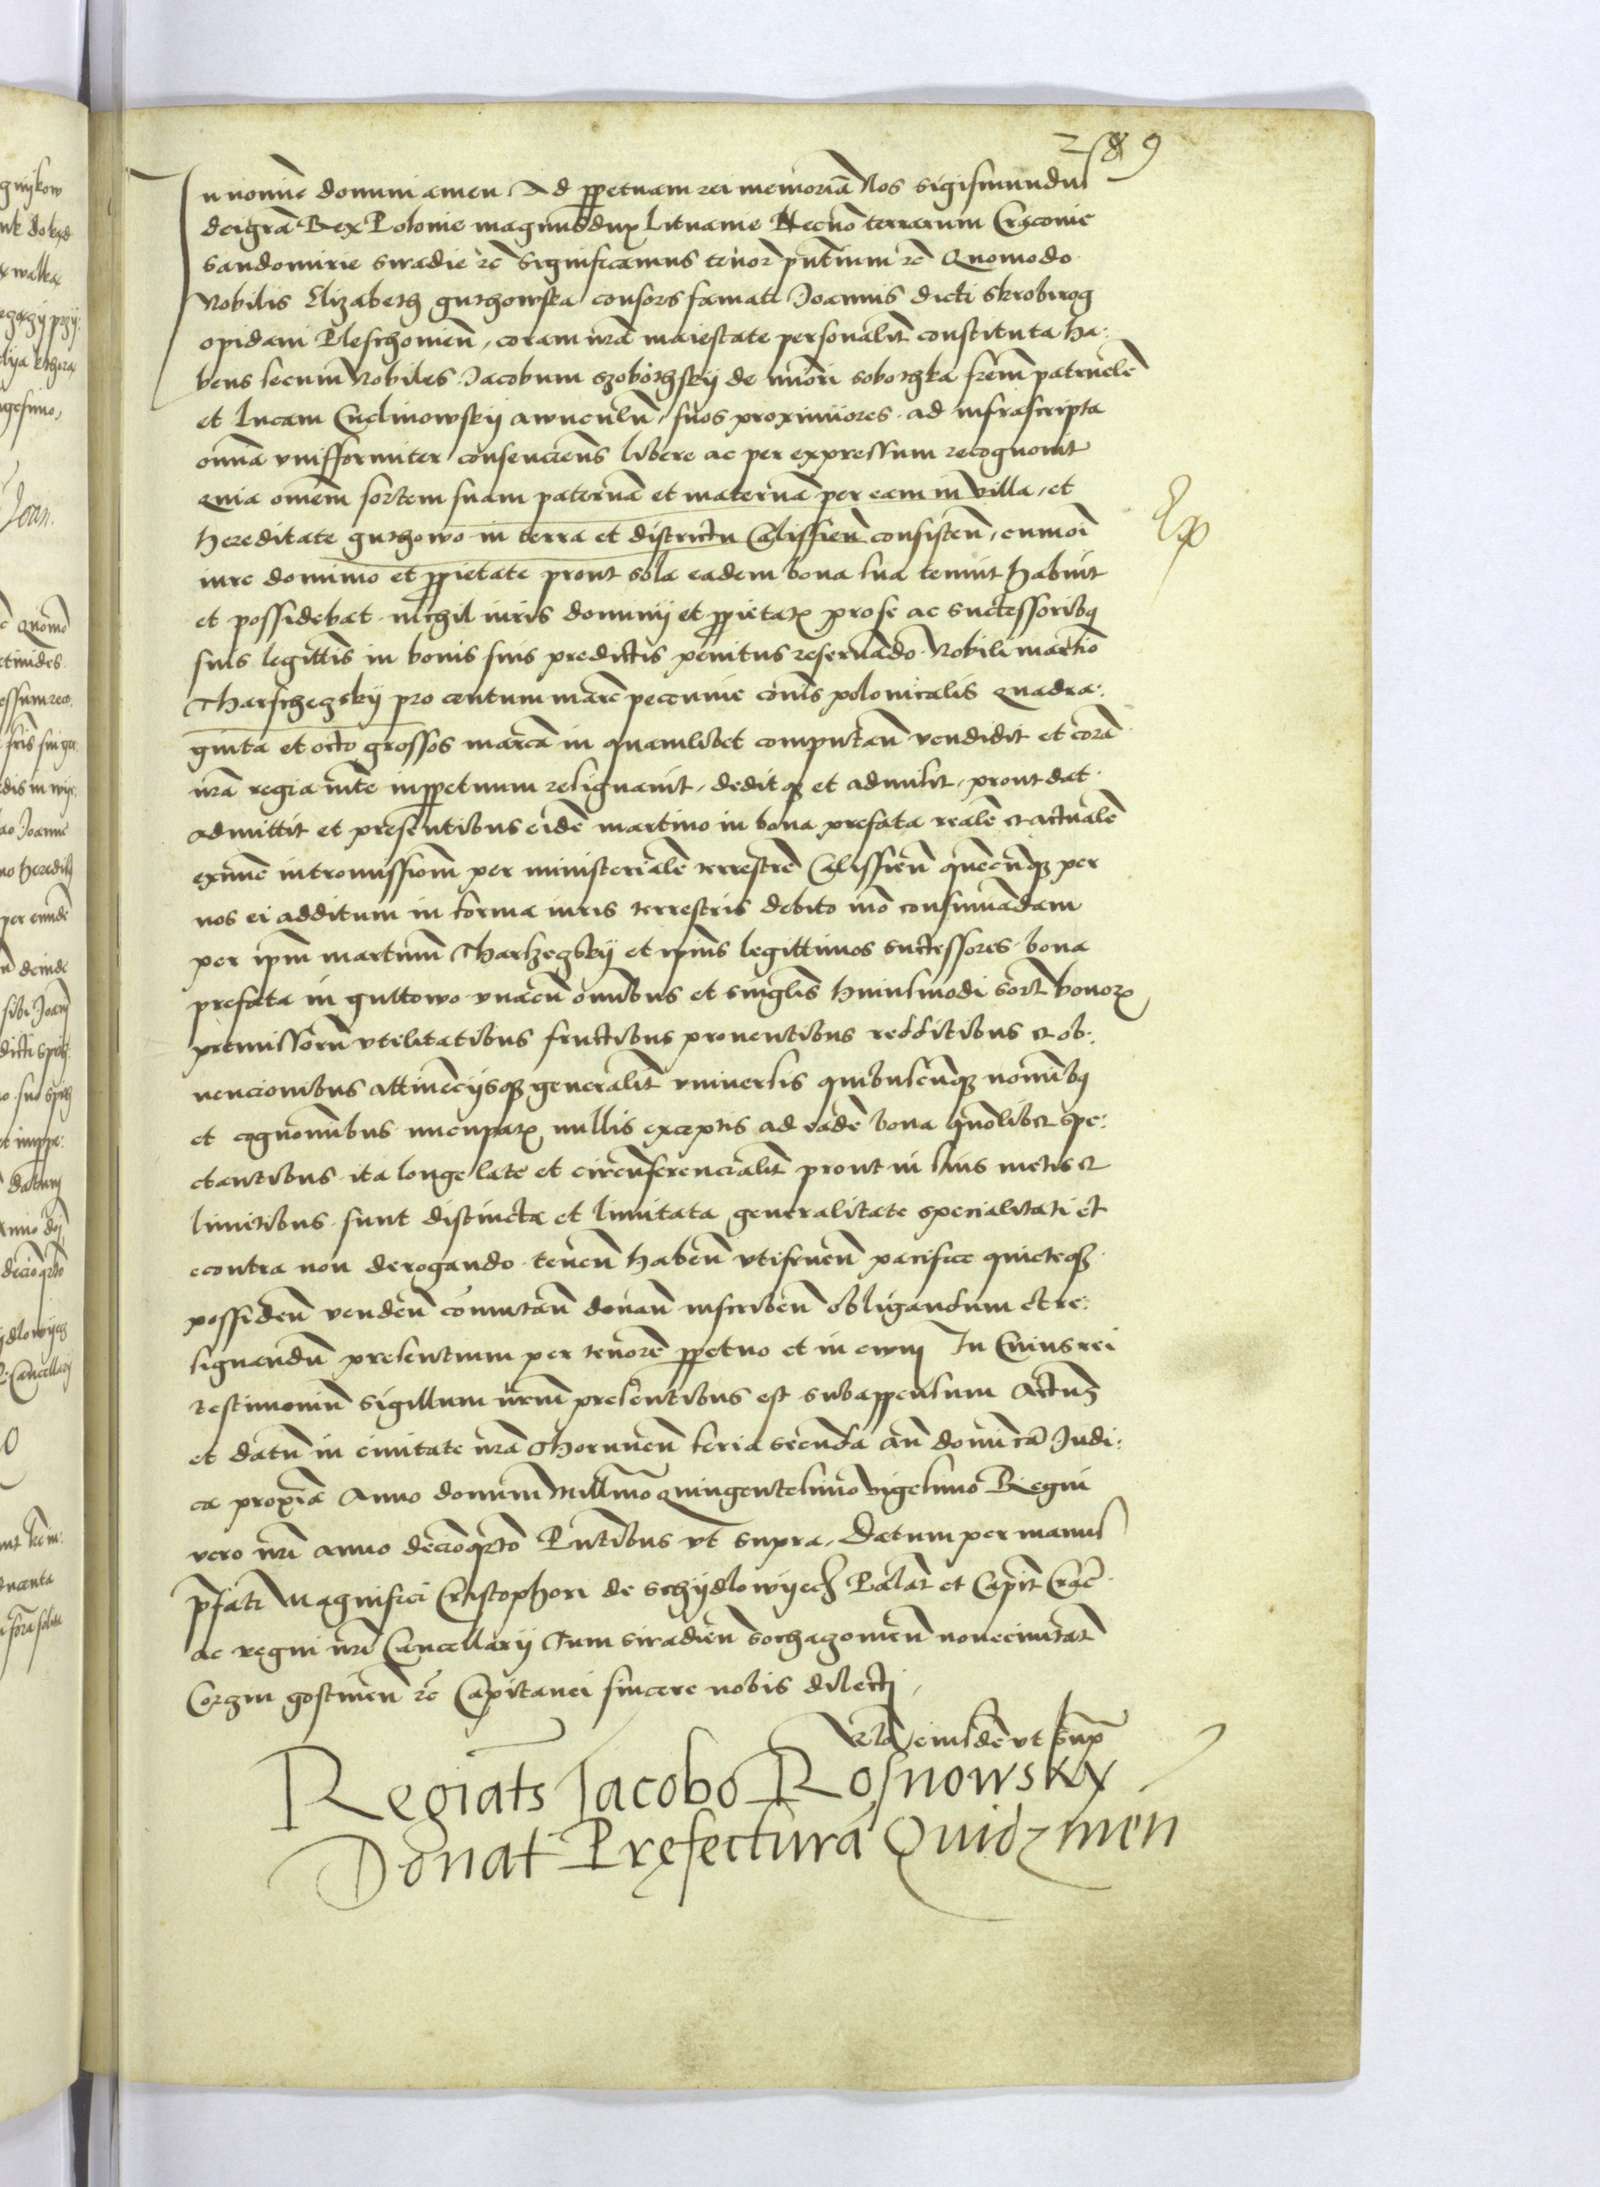 In nomine domini amen Ad ppetuam rei memoriā Nos Sigismundus
dei grā Rex Polonie magnus dux Lituanie Necnō terrarum Cracovie
Sandomirie Siradie rc̄ Significamus tenor pn̄tium rc̄ Quomodo
Nobilis Elizabeth guthowska consors famati Joannis dicti skrobirog
opidani Pleschovien̄, coram nr̄a maiestate personalit̄ constituta ha:
bens secum Nobiles Jacobum szobothskÿ de minori sobothka fr̄em patruelē
et Lucam Cuclinowskÿ awunculū, suos proximiores ad infrascripta
omnia unifformiter consenciens libere ac per expressum recognovit
Quia omnem sortem suam paternā et maternā per eam in villa, et
hereditate guthowo in terra et districtu Calissien̄ consisten̄, cum om̄i
iure dominio et ppietate prout sola eadem bona sua tenuit habuit
et possidebat nichil iuris dominij et ppietatis pro se ac successoribꝫ
suis legittīs in bonis suis predictis penitus reservādo Nobili martino
Tharschegskÿ pro centum marc̄ peccunie com̄s polonicalis Quadra:
ginta et octo grossos marcā in quamlibet computan̄ vendidit et corā
nr̄a regia mte in ppetuum resignavit, deditqꝫ et admisit, prout dat
admittit et presentibus eidē martino in bona prefata realē et actualē
intromissionē per ministerialē terrestrē Calissien̄ quēcūqꝫ per
nos ei additum in forma iuris terrestris debito mō consuvādam
per ipm̄ martinū Tharzegskÿ et ipius legittimos successores bona
prefata in guttowo unacū omībus et singlis huiusmodi sort̄ bonorꝫ
premissorū utilitatibus fructibus proventibus redditibus et ob:
vencionibus attinēcÿsqꝫ generalit̄ universis quibuscūqꝫ nominibꝫ
et cognomībus nuncupatꝫ nullis exceptis ad eadē bona quōlibet spe:
ctantibus ita longe late et circūferencialit̄ prout in suis metis et
limitibus sunt distincta et limitata generalitate specialitati et
econtra non derogando tenen̄ haben̄ utifruen̄ pacifice quieteqꝫ
possiden̄ venden̄ comutan̄ donan̄ inscriben̄ obligandum et re:
signandū presentium per tenorē ppetuo et in ewm̄ In Cuius rei
testimoniū sigillum nr̄m presentibus est subappensum Actum
et datū in civitate nr̄a Thorunen̄ feria secunda an̄ dominicā Judi:
ca proxīa Anno domini Millmō Quingentesimo vigesimo Regni
vero nr̄i anno decioqrto Pn̄tibus ut supra, Datum per manus
pfati Magnifici Cristophori de Schÿdlowÿecz Palat̄ et Capit̄ Crac̄
ac regni nr̄i Cancellarÿ Tum siradien̄ sochagowien̄ novecivitat̄
Corgin gostinen̄ rc̄ Capitanei sincere nobis dilecti,
Rela eiusdē ut sup̄
Regiats Jacobo Rosnowsky
Donat Pręfectura Quidzmen